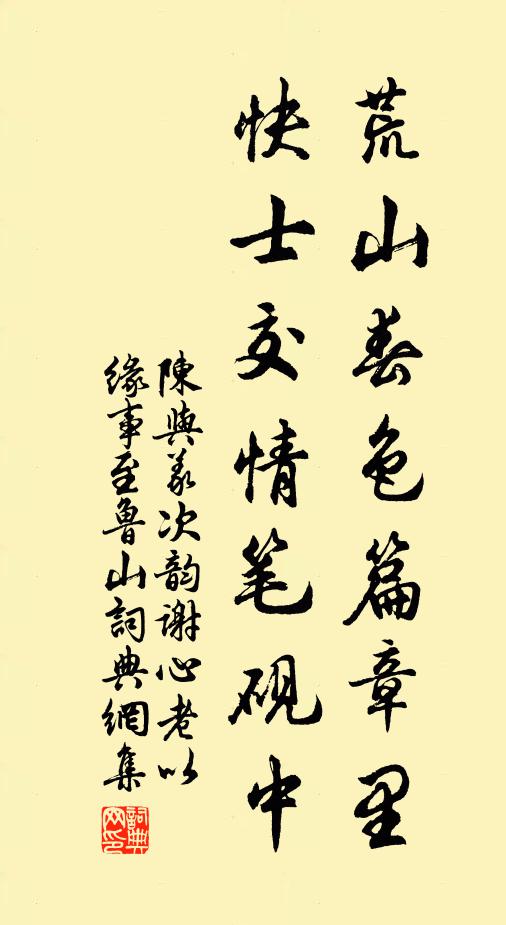 荒山春色篇章里
快士交情笔砚中
陳與義次韵謝心老以
緣事至魯山詞典網集
詞典
网印